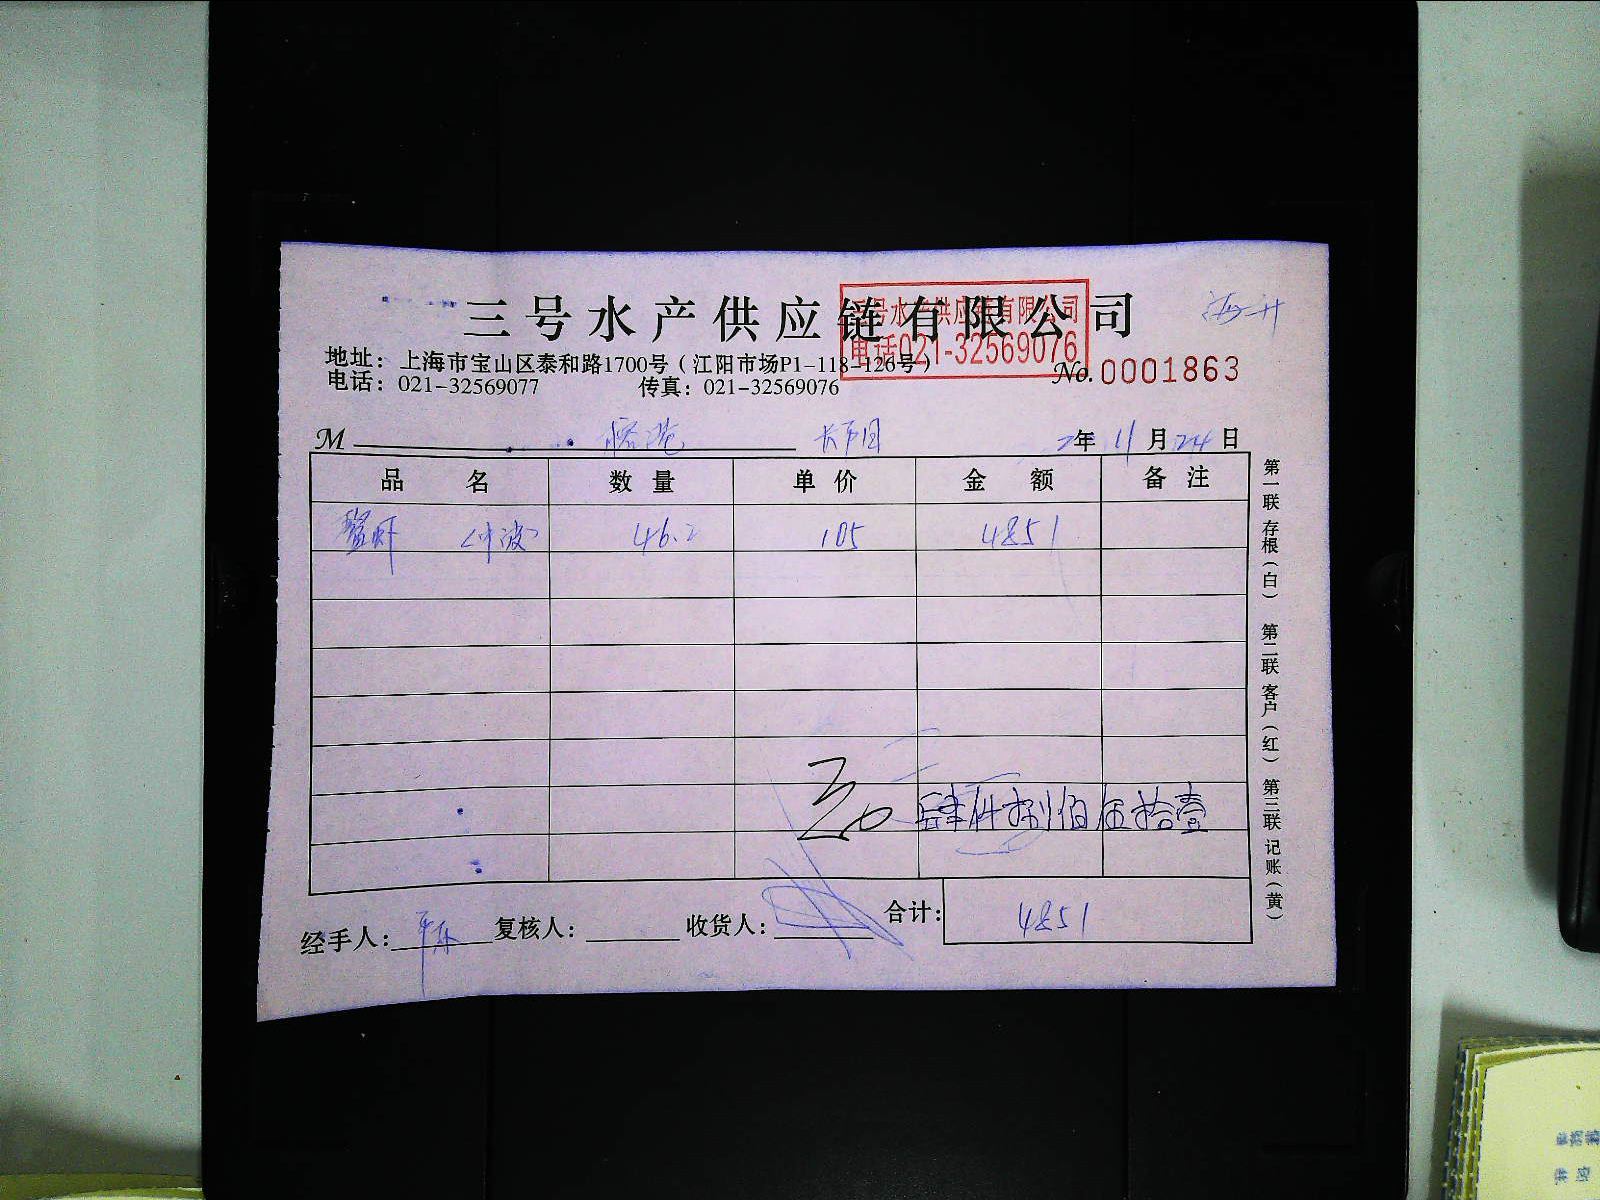 三号水产供应链有限公司
三号水产供应链有限公司
电话021-32569076
地址：上海市宝山区泰和路1700号（江阳市场P1-118-126号）
电话：021-32569077 传真：021-32569076
No. 0001863
M 年 11 月 24 日
品 名 数 量 单 价 金 额 备 注
46.2 105 4851
肆仟捌佰伍拾壹
经手人： 复核人： 收货人： 合计： 4851
第一联 存根（白） 第二联 客户（红） 第三联 记账（黄）
供 应